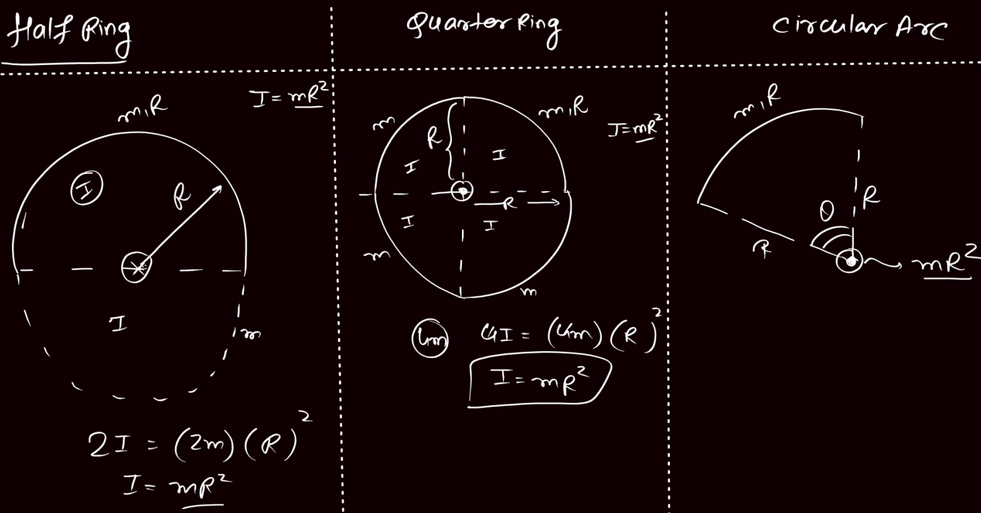 Half Ring
I = mR²
m, R
I
R
I
m
2I = (2m) (R)²
I = mR²
Quarter Ring
m
m, R
I = mR²
R
I
I
R
I
I
m
m
4m
4I = (4m) (R)²
I = mR²
Circular Arc
m, R
R
θ
R
mR²